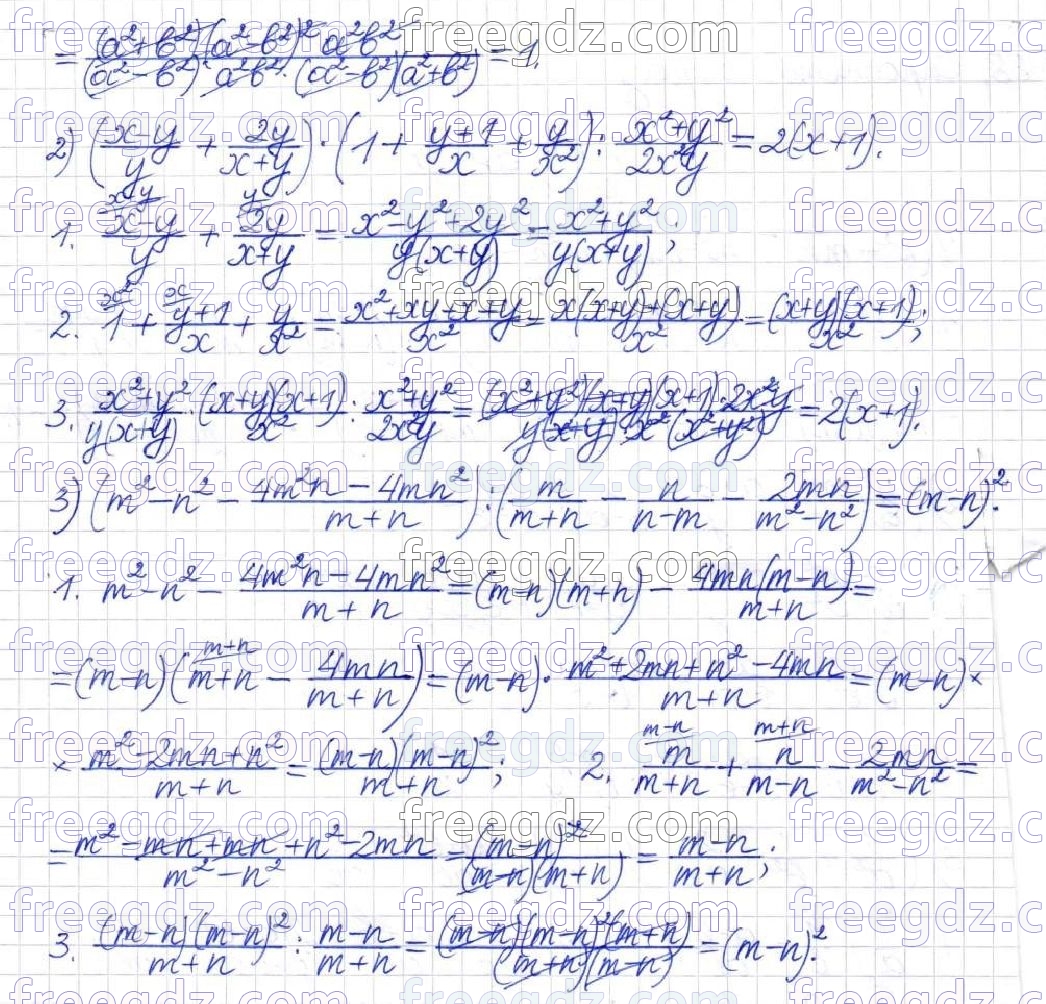 = (a²+b²)(a²-b²)² a²b² / (a²-b²) a²b² · (a²-b²)(a²+b²) = 1.
2) ((x-y)/y + 2y/(x+y)) · (1 + (y+1)/x + y/x²) : (x²+y²)/(2x²y) = 2(x+1).
1. (x-y)/y + 2y/(x+y) = (x²-y²+2y²)/(y(x+y)) = (x²+y²)/(y(x+y));
2. 1 + (y+1)/x + y/x² = (x²+xy+x+y)/x² = (x(x+y)+(x+y))/x² = ((x+y)(x+1))/x²;
3. (x²+y²)/(y(x+y)) · ((x+y)(x+1))/x² : (x²+y²)/(2x²y) = ((x²+y²)(x+y)(x+1)·2x²y)/(y(x+y)·x²(x²+y²)) = 2(x+1).
3) (m²-n² - (4m²n-4mn²)/(m+n)) : (m/(m+n) - n/(n-m) - 2mn/(m²-n²)) = (m-n)².
1. m²-n² - (4m²n-4mn²)/(m+n) = (m-n)(m+n) - (4mn(m-n))/(m+n) =
= (m-n)(m+n - 4mn/(m+n)) = (m-n) · (m²+2mn+n²-4mn)/(m+n) = (m-n) ×
× (m²-2mn+n²)/(m+n) = ((m-n)(m-n)²)/(m+n); 2. m/(m+n) + n/(m-n) - 2mn/(m²-n²) =
= (m²-mn+mn+n²-2mn)/(m²-n²) = (m-n)²/((m-n)(m+n)) = (m-n)/(m+n);
3. ((m-n)(m-n)²)/(m+n) : (m-n)/(m+n) = ((m-n)(m-n)²(m+n))/((m+n)(m-n)) = (m-n)².